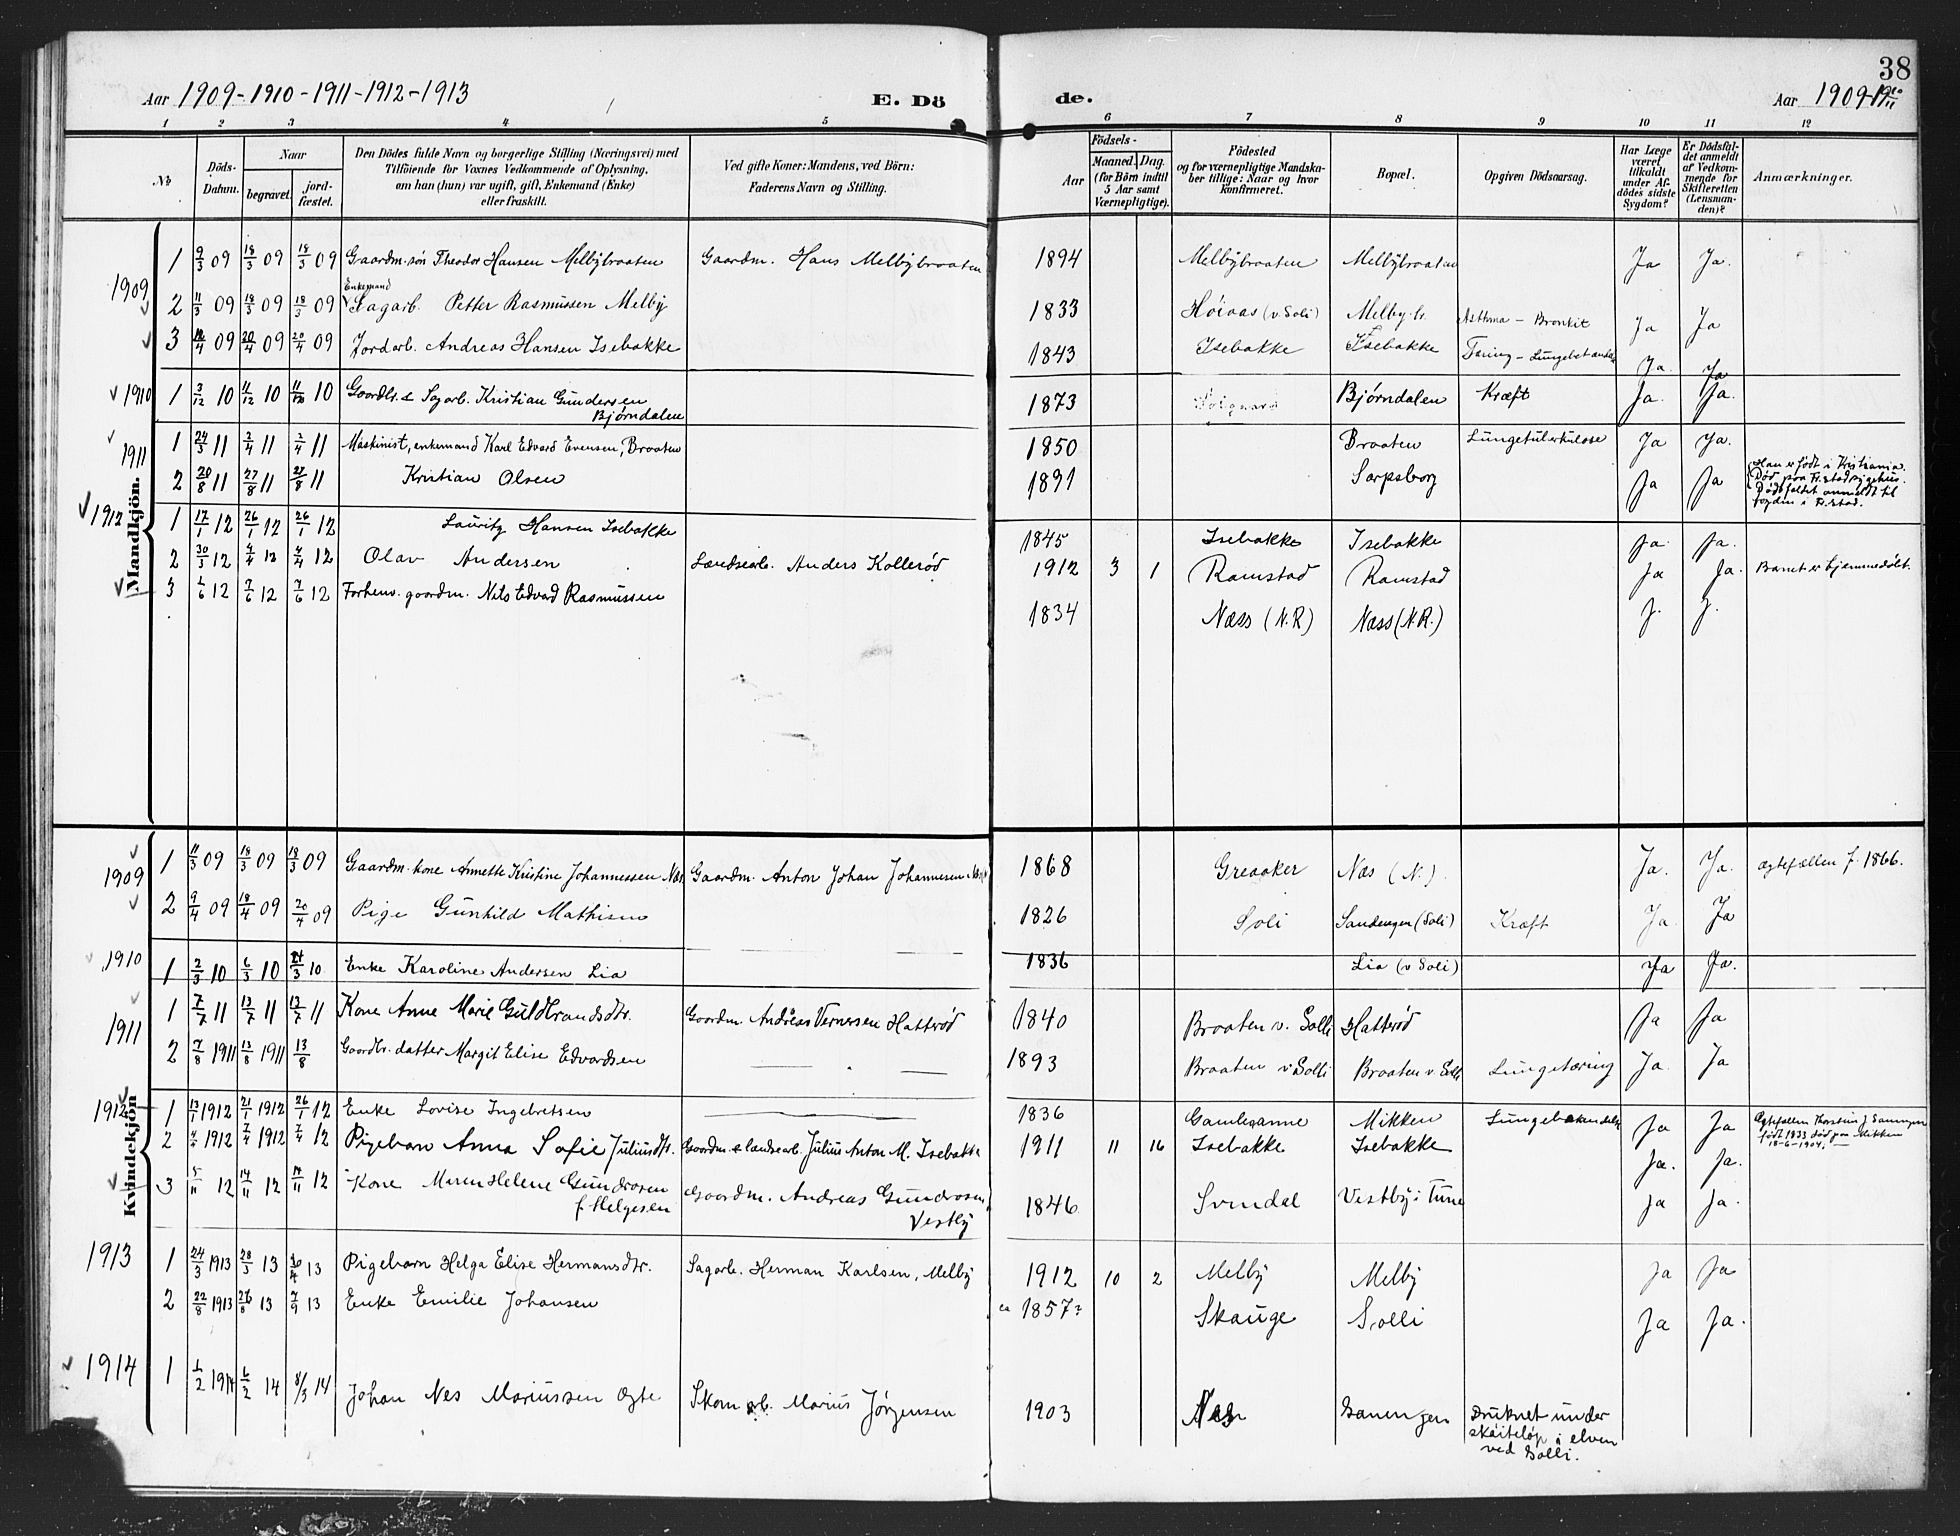 38
Aar 1909-1910-1911-1912-1913 E. Dö de. Aar 1909-
1 2 3 4 5 6 7 8 9 10 11 12
No
Döds-Datum.
Naar
begravet.
jord-fæstet.
Den Dödes fulde Navn og borgerlige Stilling (Næringsvei) med
Tilföiende for Voxnes Vedkommende af Oplysning,
om han (hun) var ugift, gift, Enkemand (Enke)
eller fraskilt.
Ved gifte Koner: Mandens, ved Börn:
Faderens Navn og Stilling.
Födsels-
Aar
Maaned. Dag.
(for Börn indtil
5 Aar samt
Værnepligtige).
Födested
og for værnepligtige Mandska-
ber tillige: Naar og hvor
konfirmeret.
Bopæl.
Opgiven Dödsaarsag.
Har Læge
været
tilkaldt
under Af-
dödes sidste
Sygdom?
Er Dödsfal-
det anmeldt
af Vedkom-
mende for
Skifteretten
(Lensman-
den)?
Anmærkninger.
Mandkjön.
1909
1 9/3 09 18/3 09 18/3 09 Gaardm. søn Theodor Hansen Melbybraaten Gaardm. Hans Melbybraaten 1894 Melbybraaten Melbybraaten Ja Ja.
Enkemand
2 11/3 09 18/3 09 18/3 09 Sagarb. Petter Rasmussen Melby 1833 Høiaas (v. Soli) Melby Asthma - Bronkit Ja Ja
3 /4 09 20/4 09 20/4 09 Jordarb. Andreas Hansen Isebakke 1843 Isebakke Isebakke Tæring - Ja. Ja
1910
1 3/12 10 11/12 10 11/12 10 Gaardbr. & Sagarb. Kristian Gundersen
Bjørndalen 1873 Bjørndalen Kræft Ja. Ja.
1911
1 24/3 11 2/4 11 2/4 11 Maskinist, enkemand Karl Edvard Evensen, Braaten 1850 Braaten Lungetuberkulose Ja Ja.
2 20/8 11 27/8 11 27/8 11 Kristian Olsen 1891 Sarpsborg Ja Ja
Han er født i Kristiania.
Død paa Fr.stad sygehus.
Dødsfaldet anmeldt til
fogden i Fr.stad.
1912
1 17/1 12 26/1 12 26/1 12 Lauritz Hansen Isebakke 1845 Isebakke Isebakke Ja. Ja.
2 30/3 12 4/4 12 4/4 12 Olav Andersen Landsearb. Anders Kollerød 1912 3 1 Ramstad Ramstad Ja Ja. Barnet er hjemmedøbt.
3 1/6 12 7/6 12 7/6 12 Forhenv. gaardm. Nils Edvard Rasmussen 1834 Næss (N.R) Næss (N.R.) J. J.
Kvindekjön
1909
1 11/3 09 18/3 09 18/3 09 Gaardm. kone Annette Kristine Johannessen Næs Gaardm. Anton Johan Johannesen 1868 Greaaker Næs (N.) Ja. Ja. Ægtefællen f. 1866.
2 9/4 09 18/4 09 20/4 09 Pige Gunhild Mathisen 1826 Soli Sandengen (Soli) Kræft Ja. Ja
1910
1 2/3 10 6/3 10 /3 10 Enke Karoline Andersen Lia 1836 Lia (v Soli) Ja Ja.
1911
1 7/7 11 13/7 11 13/7 11 Kone Anne Marie Guldbrandsdtr. Gaardm. Andreas Vernersen Hatterød 1840 Braaten v. Solli Hatterød Ja Ja
2 7/8 1911 13/8 1911 13/8 Gaardbr. datter Margit Elise Edvardsen 1893 Braaten v Solli Braaten v. Solli Lungetæring Ja. Ja
1912
1 13/1 1912 21/1 1912 26/1 12 Enke Lovise Ingebretsen 1836 Mikken Ja Ja
født 1833 død paa Mikken
18-6-1904.
2 4/4 1912 7/4 1912 7/4 12 Pigebarn Anna Sofie Juliusdtr. Gaardm. & landsearb. Julius Anton M. Isebakke 1911 11 16 Isebakke Isebakke Ja. Ja.
3 5/11 12 14/11 12 14/11 12 Kone Maren Helene Gundrosen
f. Helgesen Gaardm. Andreas Gundrosen,
Vestby 1846 Svindal Vestby i Tune Ja Ja.
1913
1 24/3 1913 28/3 13 /4 13 Pigebarn Helga Elise Hermansdtr. Sagarb. Herman Karlsen, Melby 1912 10 2 Melby Melby Ja Ja
2 22/8 1913 26/8 13 7/9 13 Enke Emilie Johansen ca 1857? Skauge Solli Ja Ja.
1914
1 1/2 1914 6/2 14 8/3 14 Johan Nes Mariussen ægte Marius Jørgensen 1903 Nes Druknet under
skøiteløp i elven
ved Solli.